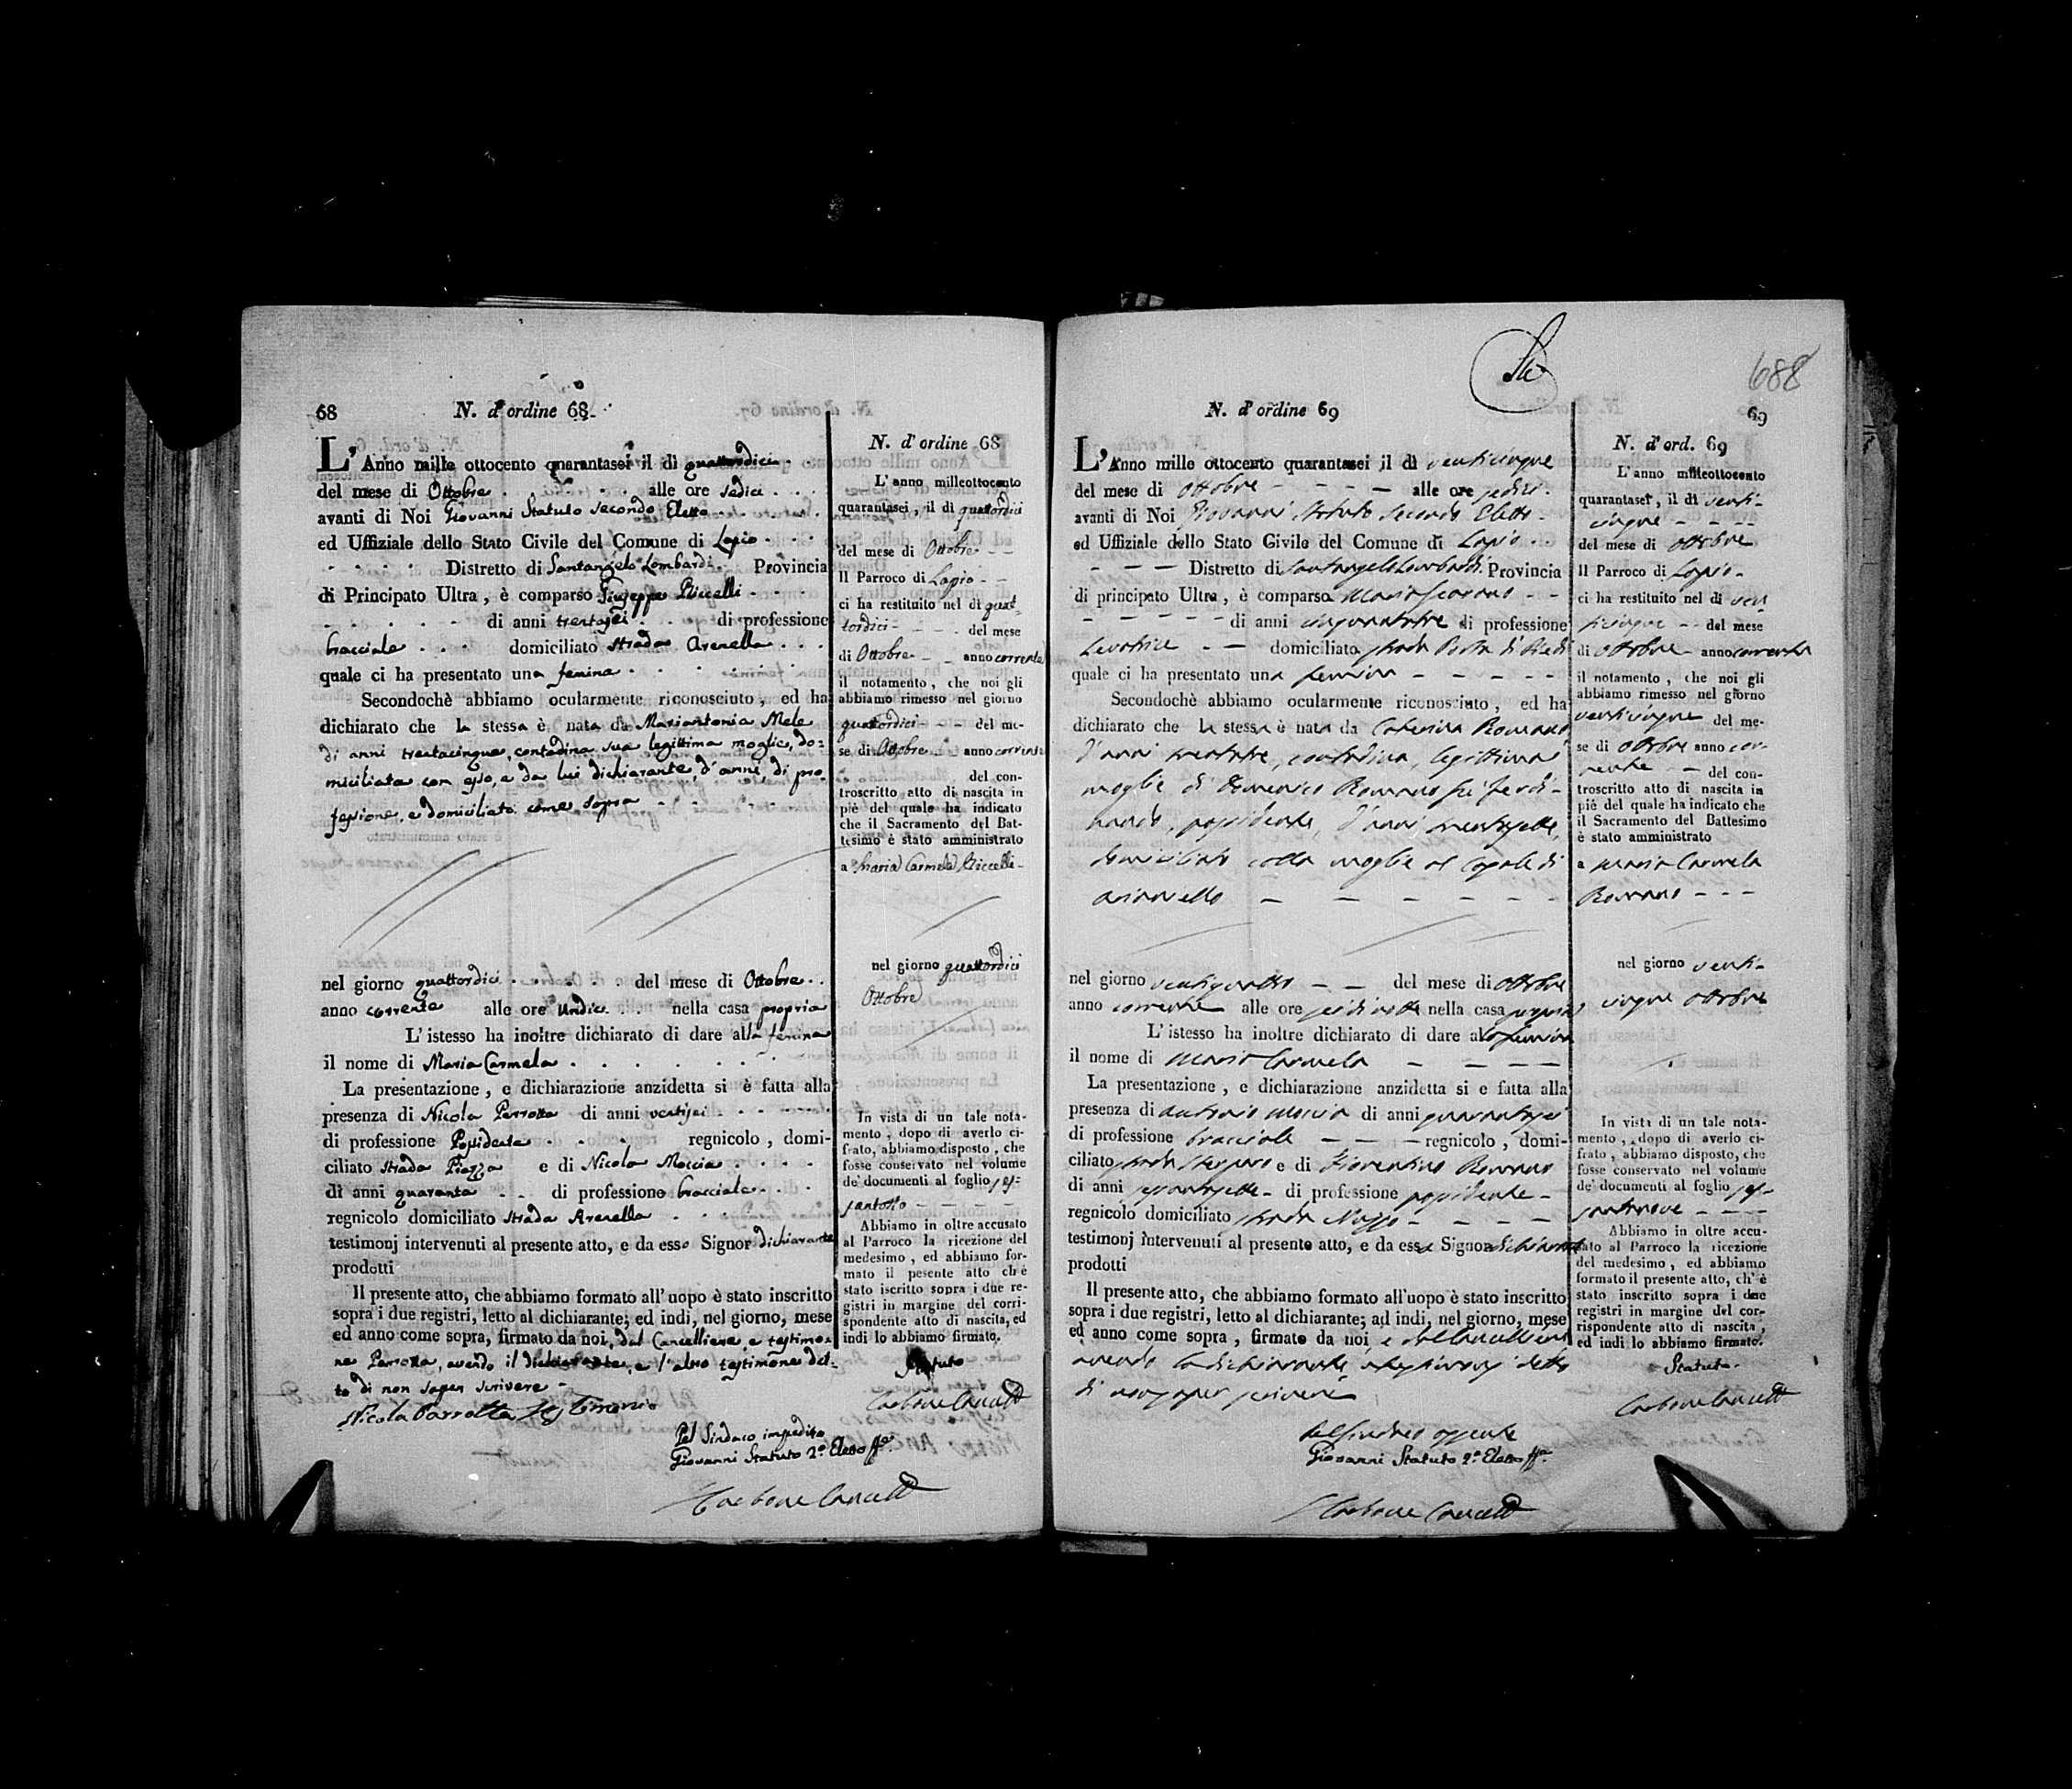 68
N. d'ordine 68
L'Anno mille ottocento quarantasei il dì quattordici
del mese di Ottobre alle ore sedici
avanti di Noi Giovanni Statuto Secondo Eletto
ed Uffiziale dello Stato Civile del Comune di Lapio
Distretto di Santangelo Lombardi Provincia
di Principato Ultra, è comparso Giuseppe
di anni trentasei di professione
bracciale domiciliato Strada Arenella
quale ci ha presentato una femina
Secondochè abbiamo ocularmente riconosciuto, ed ha
dichiarato che la stessa è nata da Mariantonia Mele
di anni trentacinque, contadina sua legittima moglie, do=
miciliata con esso, e da lui dichiarante, d'anni, di pro
fessione, e domiciliato come sopra
nel giorno quattordici del mese di Ottobre
anno corrente alle ore undici nella casa propria
L'istesso ha inoltre dichiarato di dare alla femina
il nome di Maria Carmela
La presentazione, e dichiarazione anzidetta si è fatta alla
presenza di Nicola Parrotta di anni ventisei
di professione Possidente regnicolo, domi-
ciliato Strada Piazza e di Nicola Moccia
di anni quaranta di professione bracciale
regnicolo domiciliato Strada Arenella
testimonj intervenuti al presente atto, e da esso Signor dichiarante
prodotti
Il presente atto, che abbiamo formato all'uopo è stato inscritto
sopra i due registri, letto al dichiarante; ed indi, nel giorno, mese
ed anno come sopra, firmato da noi, dal Cancelliere, e testimo=
ne Parrotta, avendo il dichiarante, e l'altro testimone det=
to di non saper scrivere
Nicola Parrotta Testimonio
Pel Sindaco impedito
Giovanni Statuto 2º Eletto ff.
Carbone Cancell
N. d'ordine 68
L'anno milleottocento
quarantasei, il dì quattordici
del mese di Ottobre
Il Parroco di Lapio
ci ha restituito nel dì quat
tordici del mese
di Ottobre anno corrente
il notamento, che noi gli
abbiamo rimesso nel giorno
quattordici del me-
se di Ottobre anno corrente
del con-
troscritto atto di nascita in
piè del quale ha indicato
che il Sacramento del Bat-
tesimo è stato amministrato
a Maria Carmela
nel giorno quattordici
Ottobre
In vista di un tale nota-
mento, dopo di averlo ci-
frato, abbiamo disposto, che
fosse conservato nel volume
de' documenti al foglio ses=
santotto
Abbiamo in oltre accusato
al Parroco la ricezione del
medesimo, ed abbiamo for-
mato il pesente atto ch'è
stato iscritto sopra i due re-
gistri in margine del corri-
spondente atto di nascita, ed
indi lo abbiamo firmato.
Statuto
Carbone Cancell
688
69
N. d'ordine 69
L'Anno mille ottocento quarantasei il dì venticinque
del mese di Ottobre alle ore sedici
avanti di Noi Giovanni Statuto Secondo Eletto
ed Uffiziale dello Stato Civile del Comune di Lapio
Distretto di Santangelo Lombardi Provincia
di principato Ultra, è comparsa Maria
di anni cinquantatre di professione
Levatrice domiciliata strada Porta di
quale ci ha presentato una femina
Secondochè abbiamo ocularmente riconosciuto, ed ha
dichiarato che la stessa è nata da Caterina Romano
d'anni trentatre, contadina, legittima
moglie di Domenico Romano fu Ferdi-
nando, possidente, d'anni trentasette,
domiciliato colla moglie al
Arianiello
nel giorno ventiquattro del mese di Ottobre
anno corrente alle ore nella casa propria
L'istesso ha inoltre dichiarato di dare alla femina
il nome di Maria Carmela
La presentazione, e dichiarazione anzidetta si e fatta alla
presenza di Antonio Moccia di anni quarantasei
di professione bracciale regnicolo, domi-
ciliato strada e di Fiorentino Romano
di anni sessantasette di professione possidente
regnicolo domiciliato strada
testimonj intervenuti al presente atto, e da essa Signora dichiarante
prodotti
Il presente atto, che abbiamo formato all'uopo è stato inscritto
sopra i due registri, letto al dichiarante; ad indi, nel giorno, mese
ed anno come sopra, firmato da noi, e dal Cancelliere
avendo la dichiarante, e testimonj detto
di non saper scrivere
Pel Sindaco
Giovanni Statuto 2º Eletto ff.
Carbone Cancell
N. d'ord. 69
L'anno milleottocento
quarantasei, il dì venti-
cinque
del mese di Ottobre
Il Parroco di Lapio
ci ha restituito nel dì ven
ticinque del mese
di Ottobre anno corrente
il notamento, che noi gli
abbiamo rimesso nel giorno
venticinque del me-
se di Ottobre anno cor-
rente del con-
troscritto atto di nascita in
piè del quale ha indicato che
il Sacramento del Battesimo
è stato amministrato
a Maria Carmela
Romano
nel giorno venti-
cinque Ottobre
In vista di un tale nota-
mento, dopo di averlo ci-
frato, abbiamo disposto, che
fosse conservato nel volume
de' documenti al foglio ses-
santanove
Abbiamo in oltre accu-
sato al Parroco la ricezione
del medesimo, ed abbiamo
formato il presente atto, ch'è
stato inscritto sopra i due
registri in margine del cor-
rispondente atto di nascita,
ed indi lo abbiamo firmato.
Statuto
Carbone Cancell